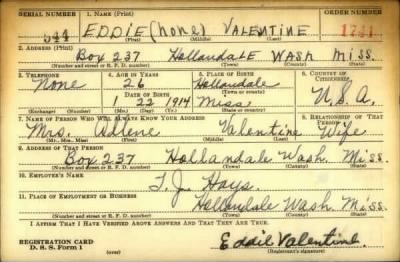 SERIAL NUMBER 1. NAME (Print) ORDER NUMBER
544 EDDIE (none) VALENTINE
(First) (Middle) (Last)
2. ADDRESS (Print)
Box 237 Hollandale Wash Miss.
(Number and street or R. F. D. number) (Town) (County) (State)
3. TELEPHONE 4. AGE IN YEARS 5. PLACE OF BIRTH 6. COUNTRY OF CITIZENSHIP
None 26 Hollandale
DATE OF BIRTH (Town or county) U.S.A.
22 1914 Miss.
(Exchange) (Number) (Mo.) (Day) (Yr.) (State or country)
7. NAME OF PERSON WHO WILL ALWAYS KNOW YOUR ADDRESS 8. RELATIONSHIP OF THAT PERSON
Mrs. Valentine Wife
(Mr., Mrs., Miss) (First) (Middle) (Last)
9. ADDRESS OF THAT PERSON
Box 237 Hollandale Wash. Miss.
(Number and street or R. F. D. number) (Town) (County) (State)
10. EMPLOYER'S NAME
T. J. Hays.
11. PLACE OF EMPLOYMENT OR BUSINESS
Hollandale Wash. Miss.
(Number and street or R. F. D. number) (Town) (County) (State)
I AFFIRM THAT I HAVE VERIFIED ABOVE ANSWERS AND THAT THEY ARE TRUE.
REGISTRATION CARD
D. S. S. Form 1 (over) Eddie Valentine
(Registrant's signature)